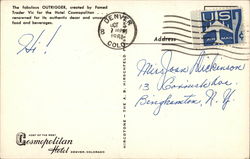 The fabulous OUTRIGGER, created by Famed
Trader Vic for the Hotel Cosmopolitan ...
renowned for its authentic decor and unusual
food and beverages.
DENVER
COLO.
US
AIR MAIL
Address
Hi!
Miss Joan Dickinson
13
Binghamton, N.Y.
MIRCOTONE - THE A. B. HIRSCHFELD
Cosmopolitan
Hotel
DENVER, COLORADO